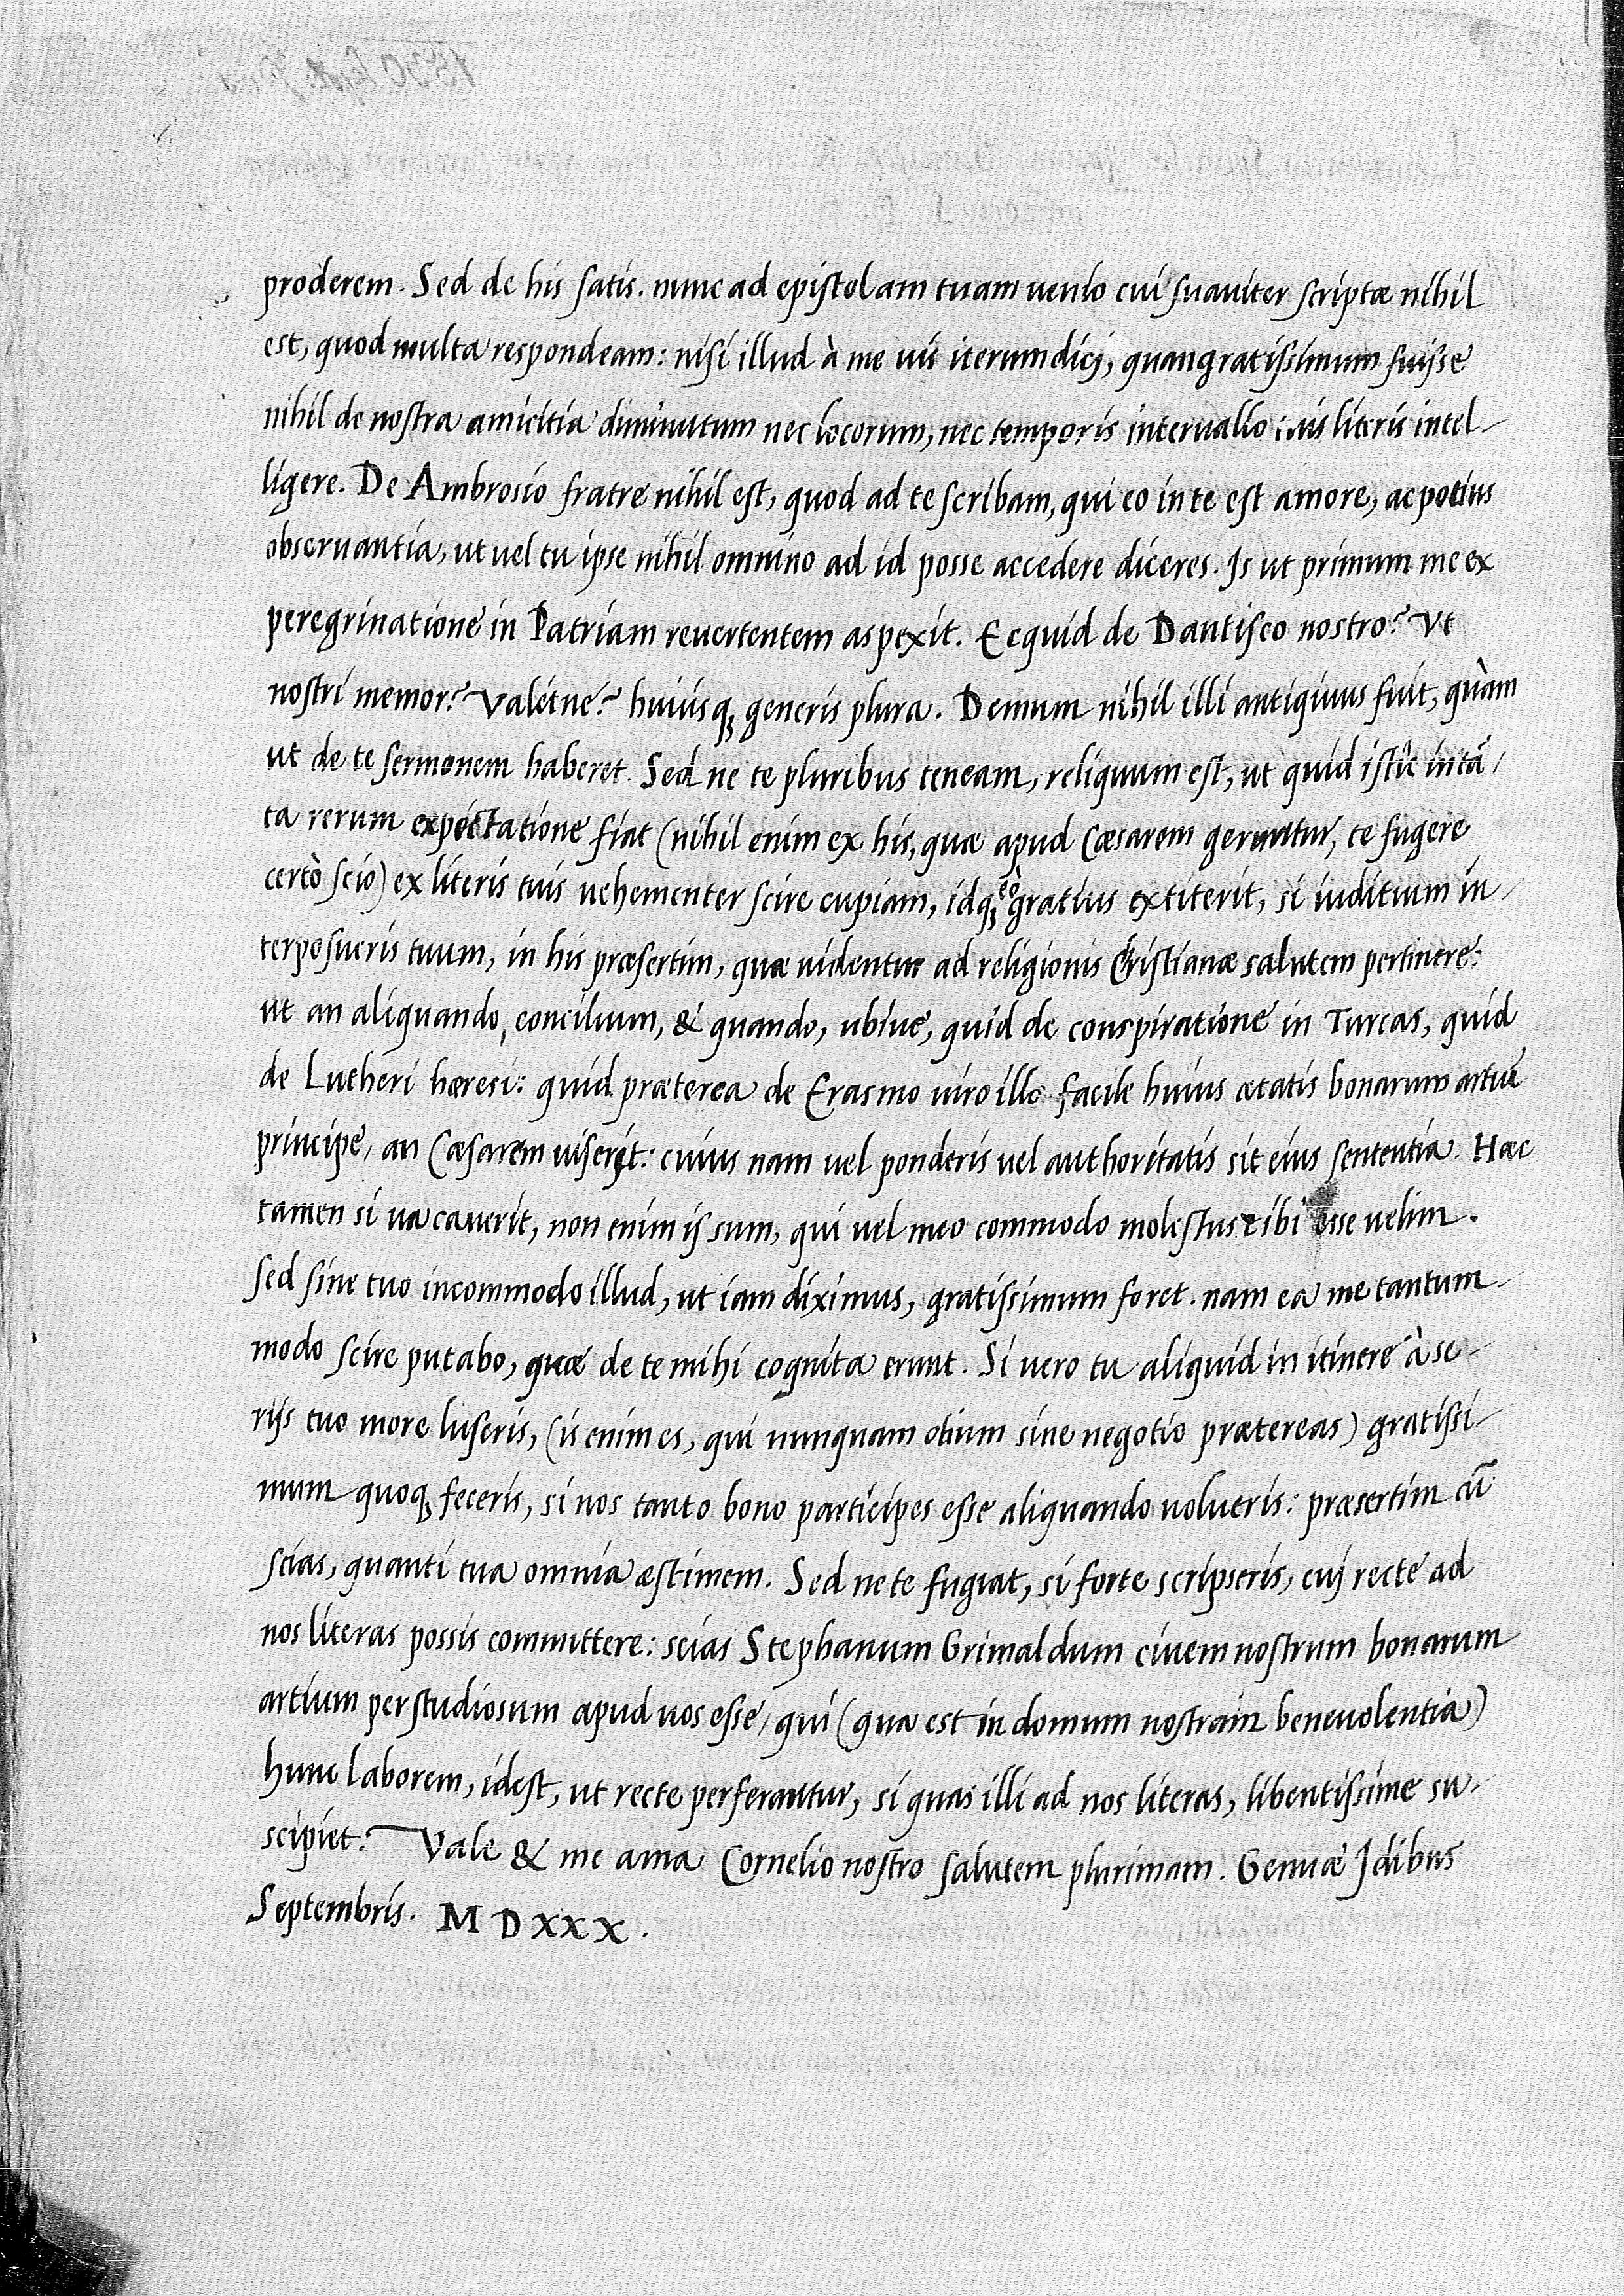 proderem. Sed de his satis. nunc ad epistolam tuam uenio cui suauiter scriptæ nihil
est, quod multa respondeam: nisi illud à me uis iterum dicj, quangratissimum fuisse
nihil de nostra amicitia diminutum nec locorum, nec temporis interuallo tuis literis intel-
ligere. De Ambrosio fratre nihil est, quod ad te scribam, qui eo in te est amore, ac potius
obseruantia, ut uel tu ipse nihil omnino ad id posse accedere diceres. Is ut primum me ex
peregrinatione in Patriam reuertentem aspexit. Ecquid de Dantisco nostro? Vt
nostri memor? Valetne? huiusq; generis plura. Demum nihil illi antiquius fuit, quàm
ut de te sermonem haberet. Sed ne te pluribus teneam, reliquum est, ut quid istic in tã-
ta rerum expectatione fiat (nihil enim ex his, quæ apud Cæsarem geruntur, te fugere
certò scio) ex literis tuis uehementer scire cupiam, idq; eò gratius extiterit, si iuditium in-
terposueris tuum, in his præsertim, quæ uidentur ad religionis Christianæ salutem pertinere:
ut an aliquando, concilium, & quando, ubiue, quid de conspiratione in Turcas, quid
de Lutheri hæresi: quid præterea de Erasmo uiro illo facile huius ætatis bonarum artiũ
principe, an Cæsarem uiserit: cuius nam uel ponderis uel authoritatis sit eius sententia. Hæc
tamen si uacauerit, non enim is sum, qui uel meo commodo molestus tibi esse uelim.
sed sine tuo incommodo illud, ut iam diximus, gratissimum foret. nam ea me tantum-
modo scire putabo, quæ de te mihi cognita erunt. Si uero tu aliquid in itinere à se-
rijs tuo more luseris, (is enim es, qui nunquam otium sine negotio prætereas) gratissi-
mum quoq; feceris, si nos tanto bono participes esse aliquando uolueris: præsertim cũ
scias, quanti tua omnia æstimem. Sed ne te fugiat, si forte scripseris, cuj recte ad
nos literas possis committere: scias Stephanum Grimaldum ciuem nostrum bonarum
artium perstudiosum apud uos esse, qui (qua est in domum nostram beneuolentia)
hunc laborem, idest, ut recte perferantur, si quas illi ad nos literas, libentissime su-
scipiet. Vale & me ama Cornelio nostro salutem plurimam. Genuæ Idibus
Septembris. M D XXX.